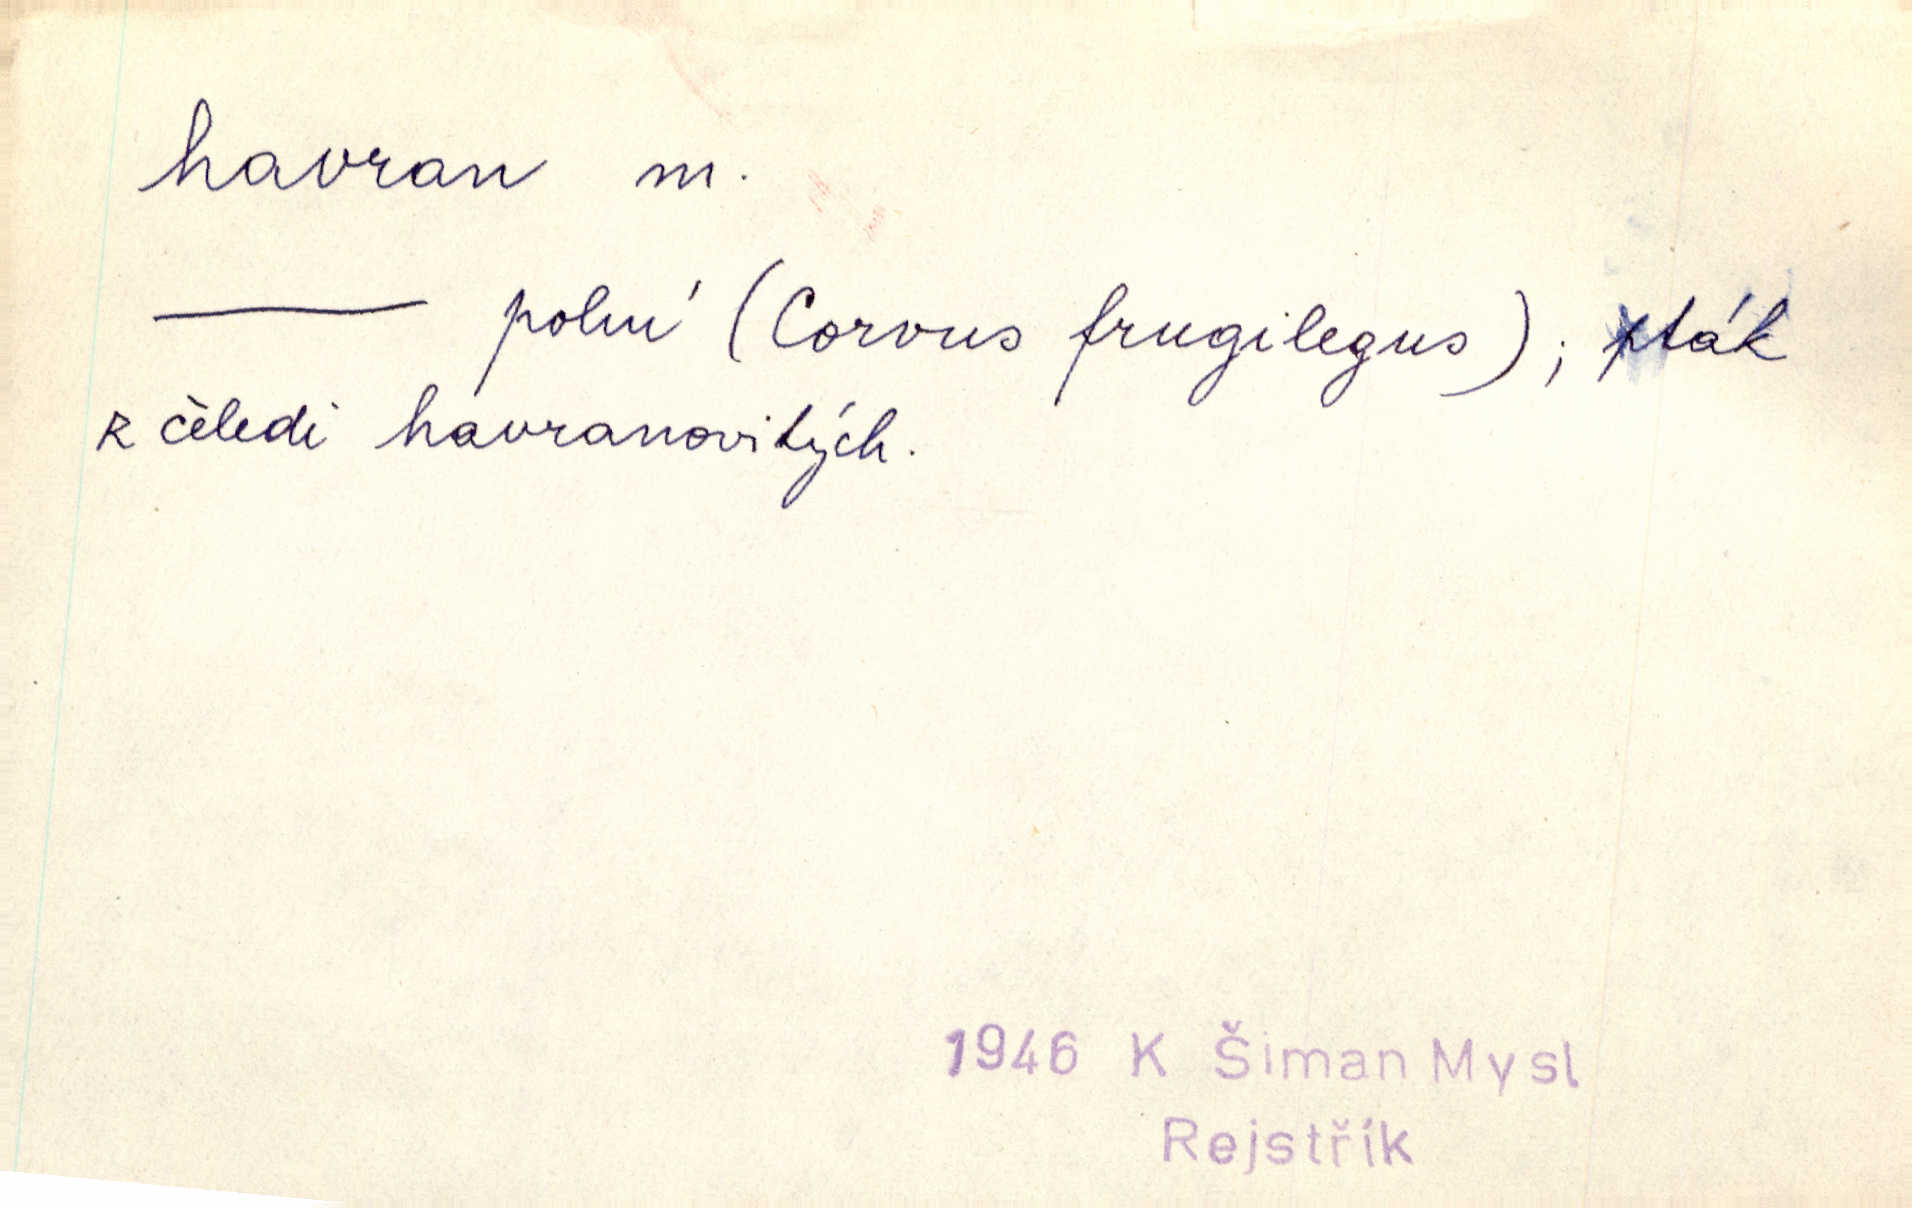 havran m.
—— polní (Corvus frugilegus); pták
z čeledi havranovitých.
1946 K Šiman Mysl
Rejstřík